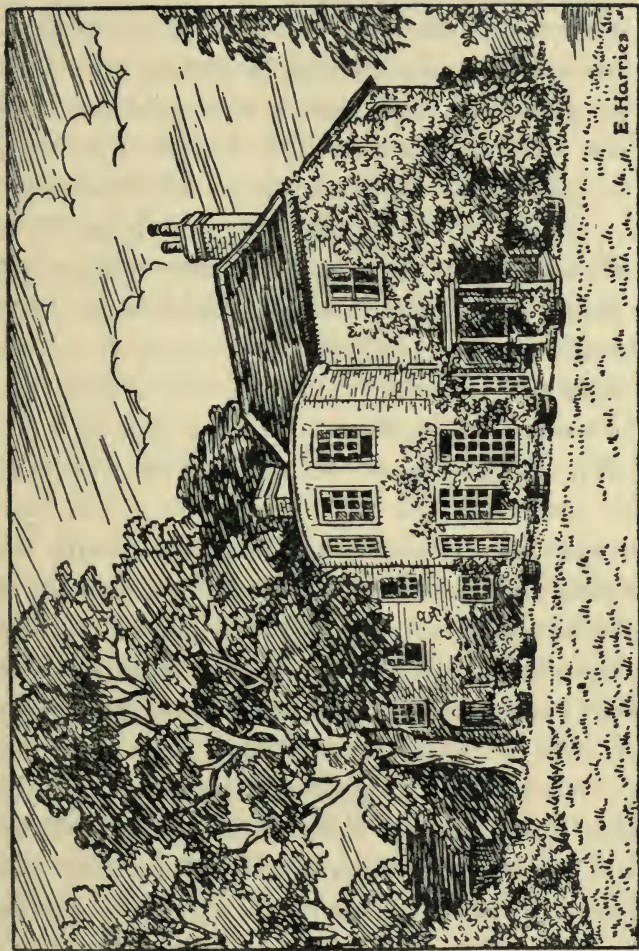 E. Harries